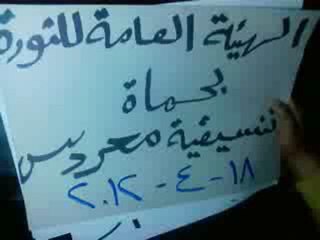 الهيئة العامة للثورة
بحماة
تنسيقية معردس
١٨ - ٤ - ٢٠١٢